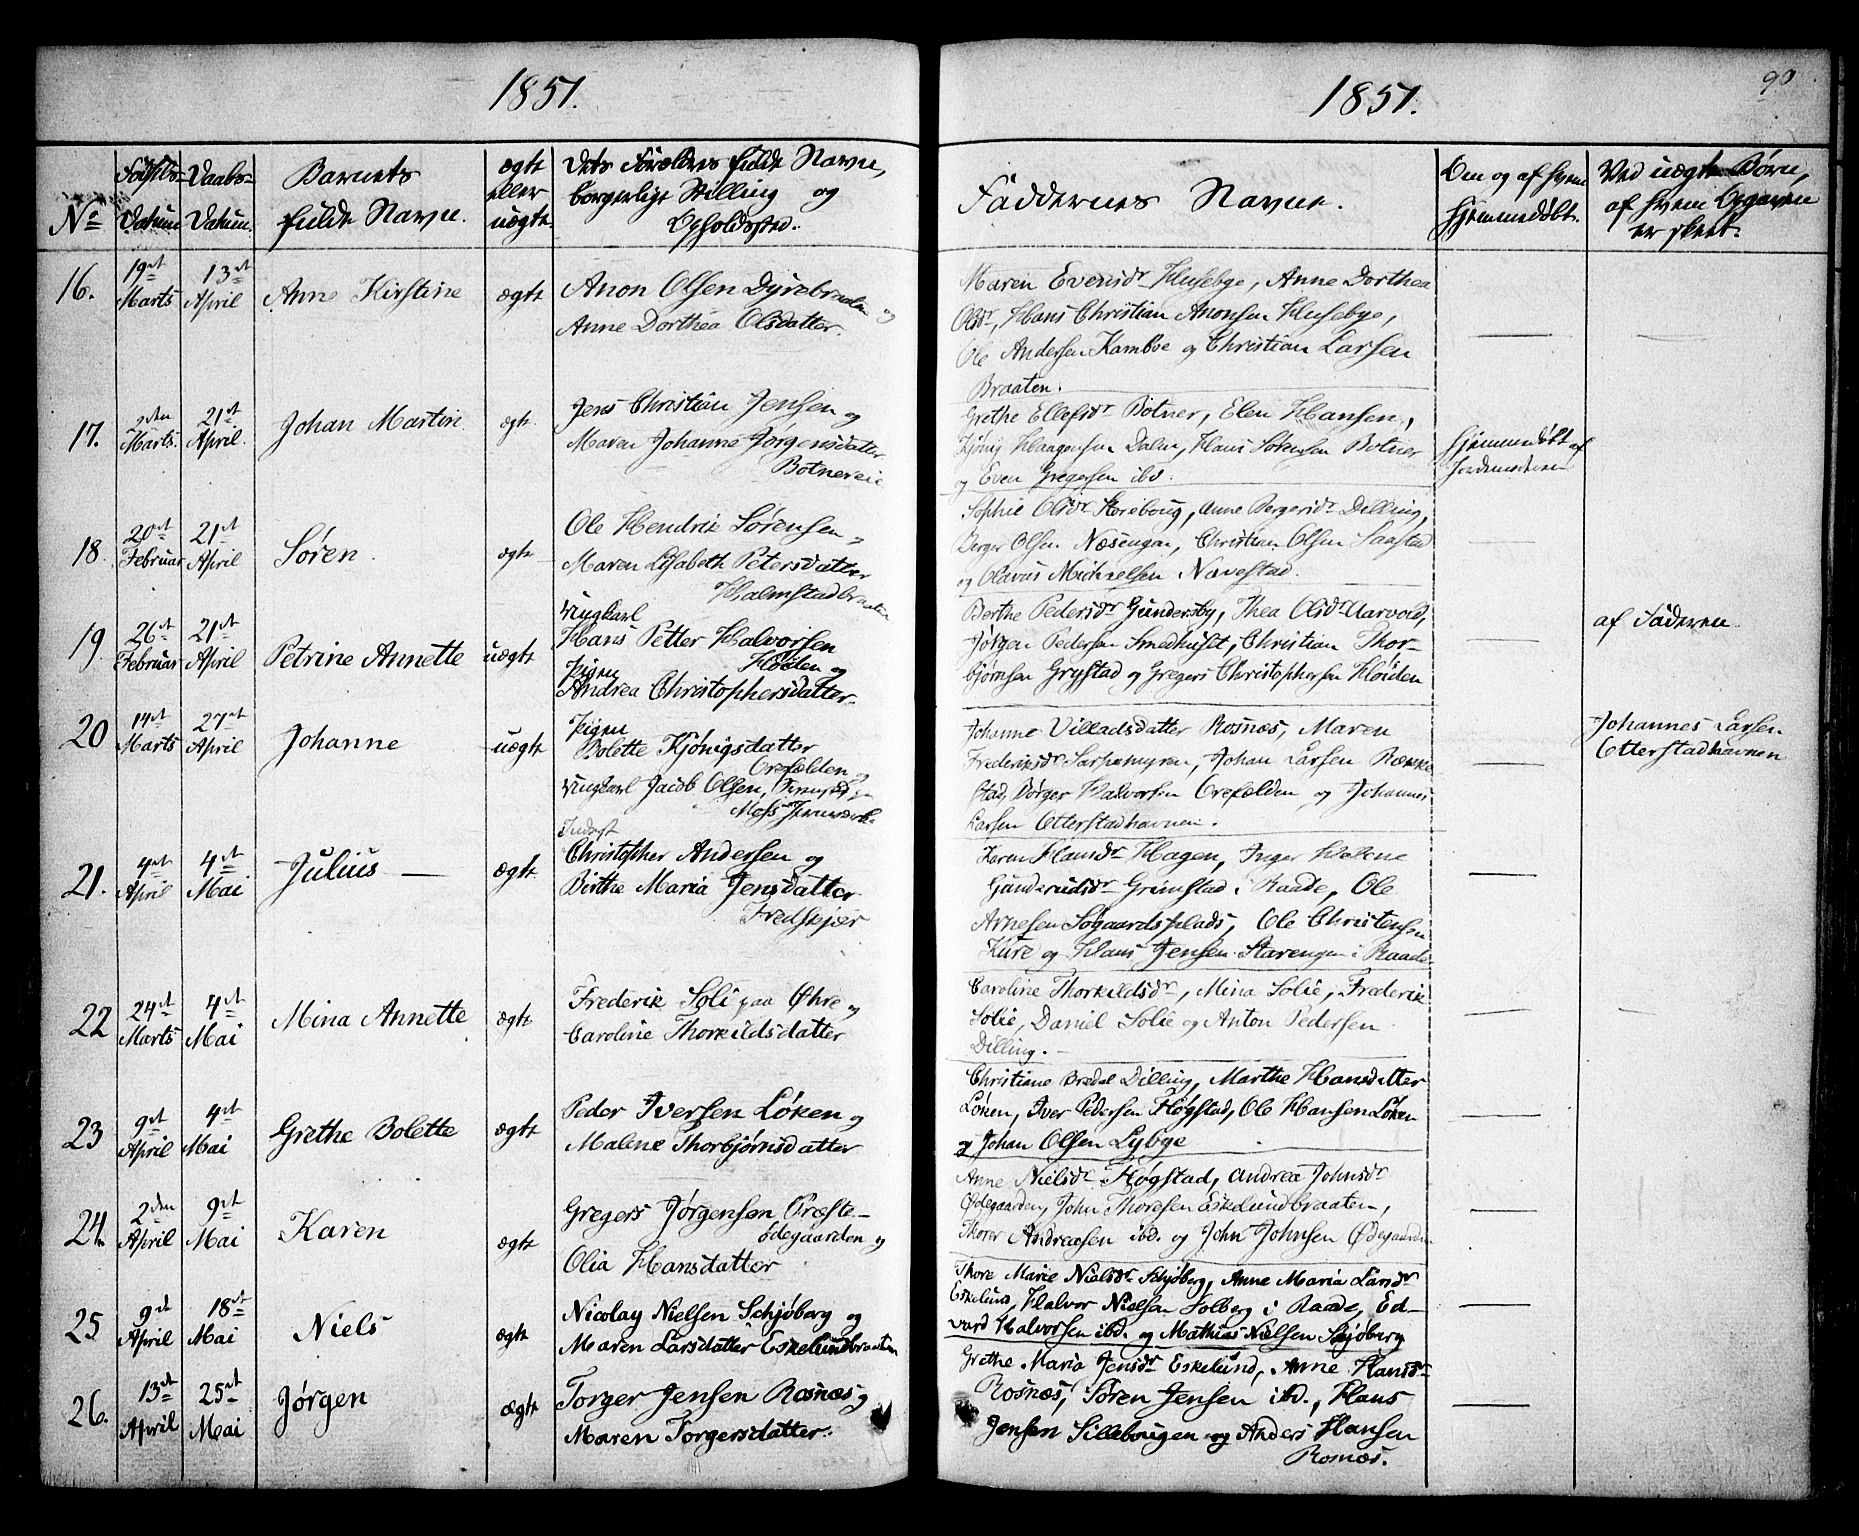 1851.
No
Fødsels-
Datum
Daabs-
Datum.
Barnets
fulde Navne.
ægte
eller
uægte.
Dets Forældres fulde Navne,
borgerlige Stilling og
Opholdssted.
16.
19de
Marts
13de
April
Anne Kirstine
ægte
Anon Olsen Dyrebraaten og
Anne Dorthea Olsdatter.
17.
2den
Marts.
21de
April.
Johan Martin
ægte
Jens Christian Jensen og
Maren Johanne Jørgensdatter
Botnereie
18.
20de
Februar
21de
April
Søren.
ægte
Ole Hendrik Sørensen og
Maren Lisabeth Petersdatter
Halmstadbraaten
19.
26de
Februar
21de
April
Petrine Annette
uægte
Ungkarl
Hans Petter Halvorsen
Kløiden og
Pigen
Andrea Christophersdatter.
20
14de
Marts
27de
April
Johanne
uægte
Pigen
Bolette Kjønigsdatter
Orefælden og
Ungkarl Jacob Olsen,
Moss Jernværk.
Inderst
21.
4de
April
4de
Mai
Julius —
ægte
Christopher Andersen og
Birthe Maria Jensdatter
Fredskjær
22
24de
Marts
4de
Mai
Mina Annette
ægte
Frederik Soli paa Øhre og
Caroline Thorkildsdatter
23
9de
April
4de
Mai
Grethe Bolette
ægte
Peder Iversen Løken og
Malene Thorbjørnsdatter
24.
2den
April
9de
Mai
Karen
ægte
Gregers Jørgensen Præste-
ødegaarden og
Olia Hansdatter
25
9de
April
18de
Mai
Niels
ægte
Nicolay Nielsen Schjøberg og
Maren Larsdatter Eskelundbraaten
26.
13de
April
25de
Mai
Jørgen
ægte
Torger Jensen Rosnæs og
Maren Torgersdatter.
1851.
90
Faddernes Navne.
Om og af hvem
hjemmedøbt.
Ved uægte Børn,
af hvem Opgaven
er skeet.
Maren Evensdr Husebye, Anne Dorthea
Olsdr, Hans Christian Anonsen Husebye,
Ole Andersen Kamboe og Christian Larsen
Braaten.
Grethe Ellefsdr Botner, Elen Hansen,
Kjønig Haagensen Dalen, Hans Sørensen Botner
og Even Gregersen ibd.
hjemmedøbt af
Jordemoderen
Sophie Olsdr Horeboug, Anne Bergersdr Dilling,
Berger Olsen Næsengen, Christian Olsen Saastad
og Olavus Michaelsen Navestad.
Berthe Pedersdr Gundersby, Thea Olsdr Aarvold,
Jørgen Pedersen Smedhuset, Christian Thor-
bjørnsen Grystad og Gregers Christophersen Kløiden
af Faderen
Johanne Villadsdatter Rosnæs, Maren
Frederiksdr Sarpamyren, Johan Larsen Række
stad, Børger Halvorsen Orefælden og Johannes
Larsen Otterstadhavnen.
Johannes Larsen
Otterstadhavnen
Karen Hansdr Hagen, Inger Helene
Gundersdr Grimstad i Raade, Ole
Arnesen Sogaardsplads, Ole Christensen
Kure og Hans Jensen Starengen i Raade
Caroline Thorkildsdr, Mina Solie, Frederik
Solie, Daniel Solie og Anton Pedersen
Dilling. —
Christiane Bredal Dilling, Marthe Hansdatter
Løken, Iver Pedersen Høgstad, Ole Hansen Løken
og Johan Olsen Lybye
Anne Nielsdr Høgstad, Andrea Johnsdr
Ødegaarden, John Thoresen Eskelundbraaten,
Thorer Andreasen ibd. og John Johnsen Ødegaarden
Thore Marie Nielsdr Schjøberg, Anne Maria Larsdr
Eskelund, Halvor Nielsen Solberg i Raade, Ed-
vard Halvorsen ibd. og Mathias Nielsen Skjøberg
Grethe Maria Jensdr Eskelund, Anne Hansdr
Rosnæs, Søren Jensen ibd., Hans
Jensen Sillebougen og Anders Hansen
Rosnæs.